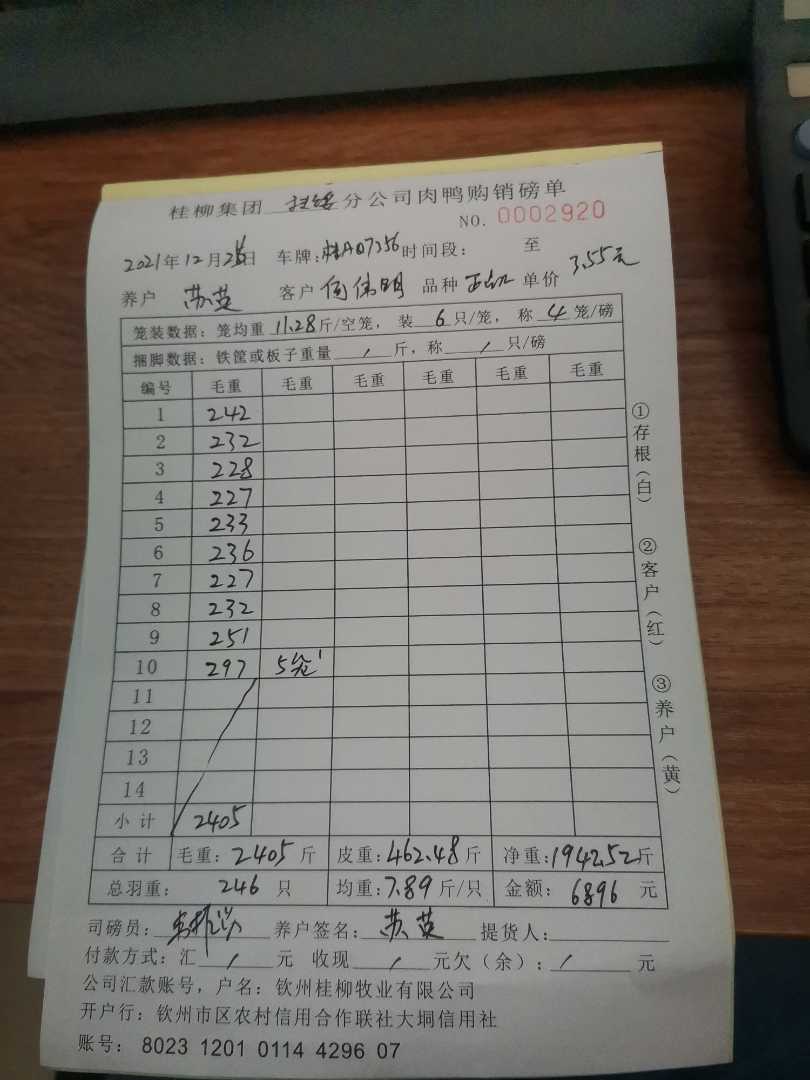 桂柳集团 扶绥 分公司肉鸭购销磅单
NO. 0002920
2021年12月26日 车牌：桂A07356 时间段： 至
养户 苏英 客户 伟明 品种 单价 3.55元
笼装数据：笼均重 11.28 斤/空笼，装 6 只/笼，称 4 笼/磅
捆脚数据：铁筐或板子重量 / 斤，称 / 只/磅
编号 毛重 毛重 毛重 毛重 毛重 毛重
1 242
2 232
3 228
4 227
5 233
6 236
7 227
8 232
9 251
10 297 5仓
11
12
13
14
小计 2405
合计 毛重：2405 斤 皮重：462.48 斤 净重：1942.52 斤
总羽重： 246 只 均重：7.89 斤/只 金额： 6896 元
司磅员： 养户签名： 苏英 提货人：
付款方式：汇 / 元 收现 / 元欠（余）： / 元
公司汇款账号，户名：钦州桂柳牧业有限公司
开户行：钦州市区农村信用合作联社大垌信用社
账号： 8023 1201 0114 4296 07
①存根（白）
②客户（红）
③养户（黄）